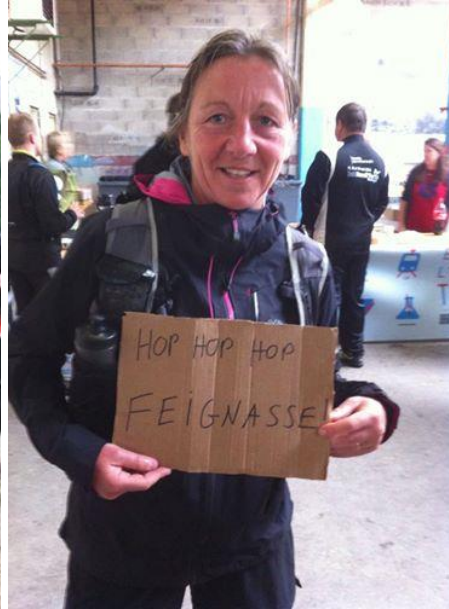 HOP HOP HOP
FEIGNASSE!